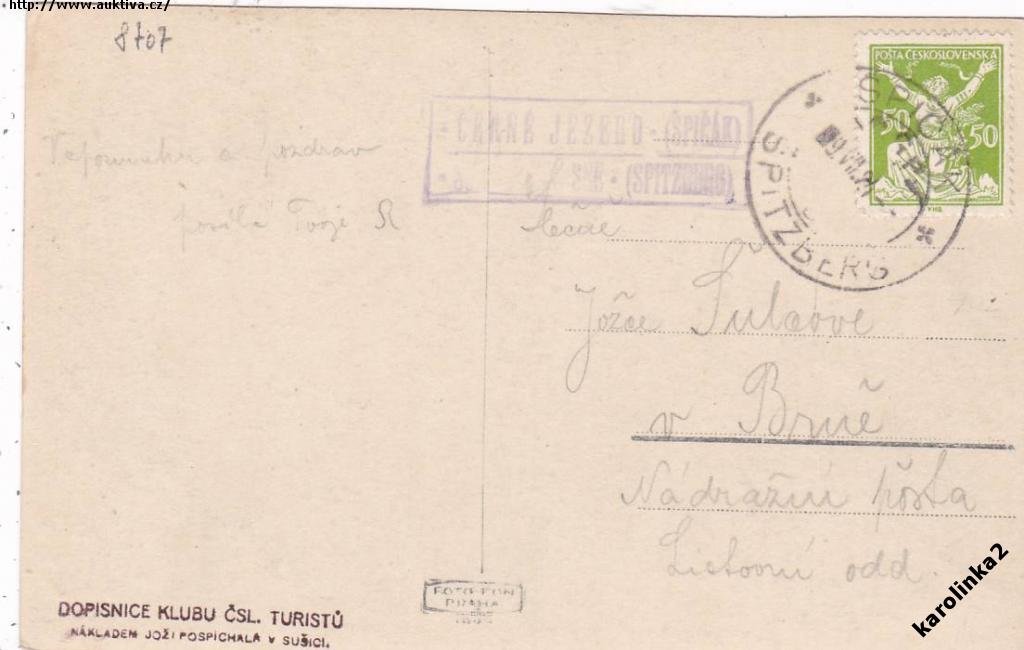 http://www.auktiva.cz/
8707
POŠTA ČESKOSLOVENSKÁ
50 50
ŠPIČÁK
SPITZBERG
ČERNÉ JEZERO - (ŠPIČÁK)
SEE - (SPITZBERG)
a pozdrav
posílá Tvoje R
Jožce Šulcové
v Brně
Nádražní pošta
Listovní odd.
FOTOFON
PRAHA
DOPISNICE KLUBU ČSL. TURISTŮ
NÁKLADEM JOŽI POSPÍCHALA V SUŠICI.
karolinka2